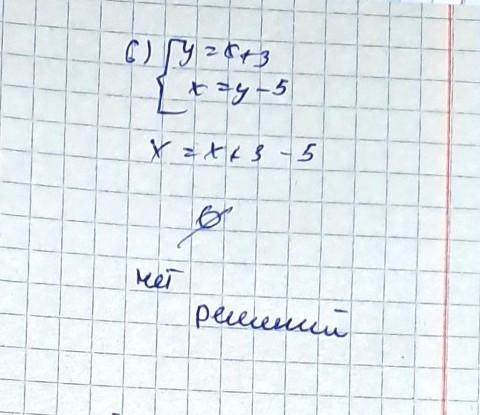 б) { y = x + 3
x = y - 5
x = x + 3 - 5
∅
нет
решений